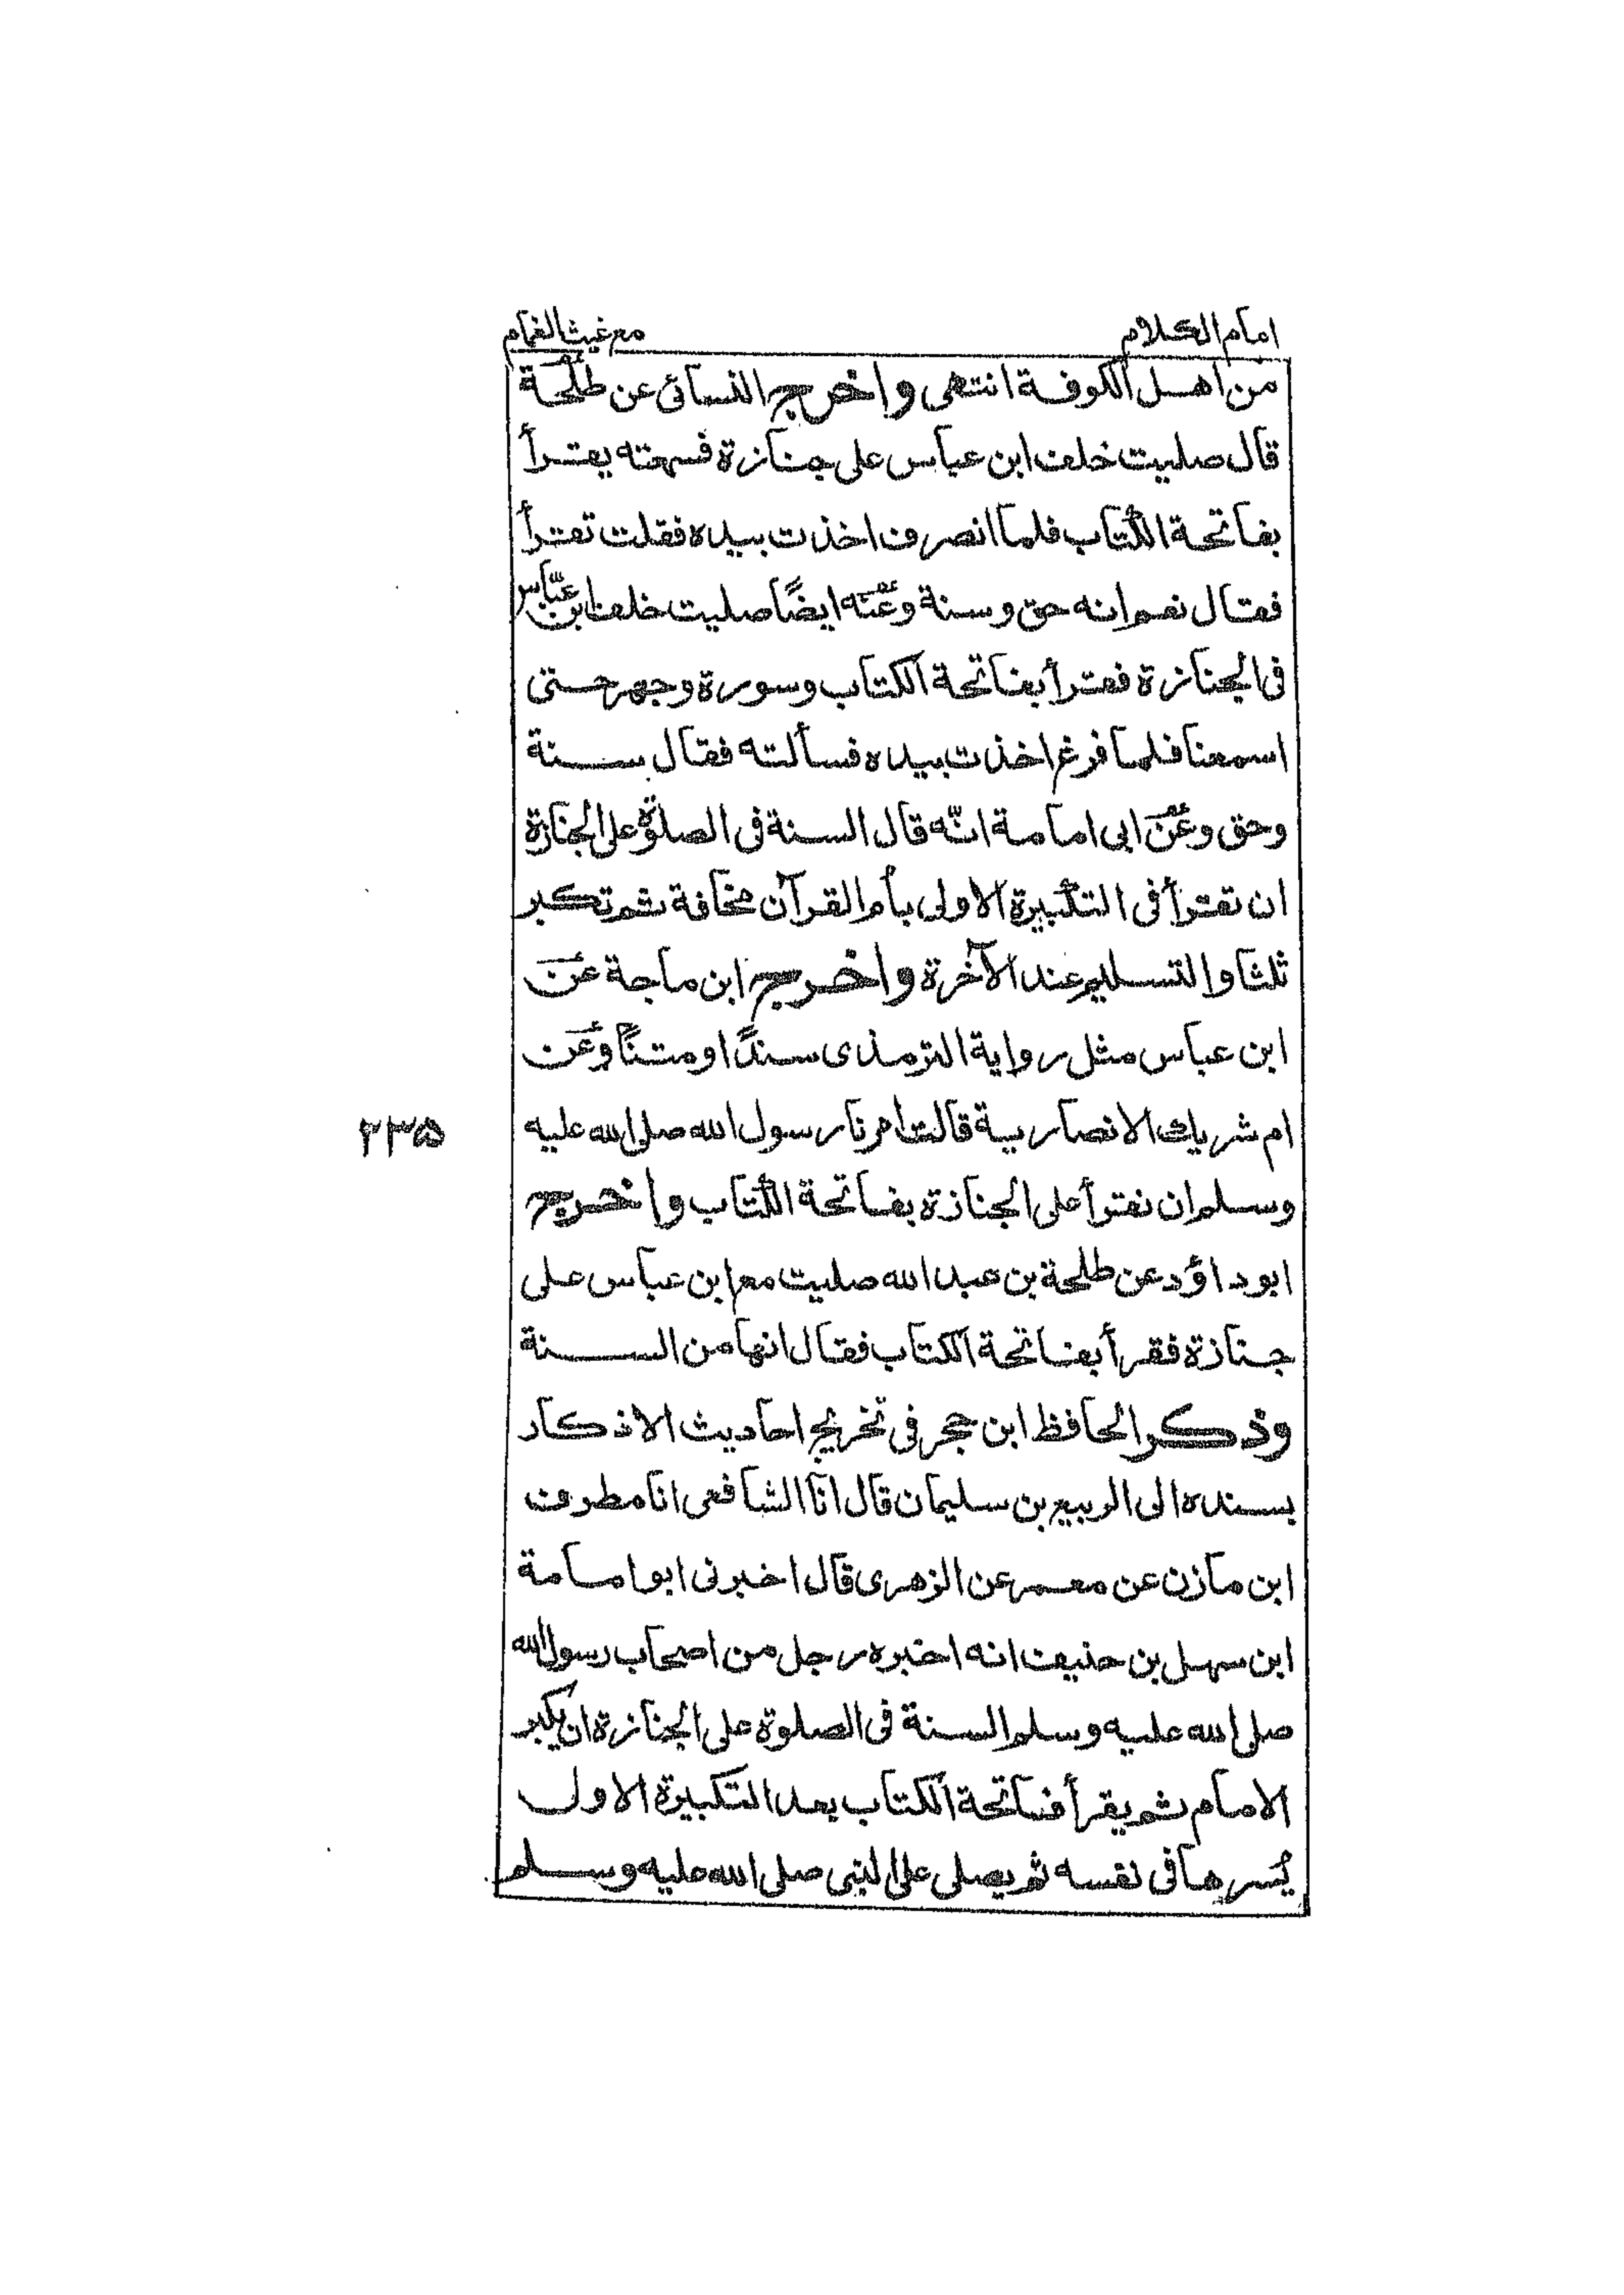 امام الكلام
مع غيث الغمام
من اهل الكوفة انتهى واخرج النسائى عن طلحة
قال صليت خلف ابن عباس على جنازة فسمعته يقرأ
بفاتحة الكتاب فلما انصرف اخذت بيده فقلت تقرأ
فقال نعم انه حق وسنة وعنه ايضًا صليت خلف ابن عبّاس
فى الجنازة فقرأ بفاتحة الكتاب وسورة وجهر حتى
اسمعنا فلما فرغ اخذت بيده فسألته فقال سنة
وحق وعن ابى امامة انّه قال السنة فى الصلوة على الجنازة
ان تقرأ فى التكبيرة الاولى بأم القرآن مخافة ثم تكبر
ثلثا والتسليم عند الآخرة واخرج ابن ماجة عن
ابن عباس مثل رواية الترمذى سندًا ومتنًا وعن
ام شريك الانصارية قالت امرنا رسول الله صلى الله عليه
وسلم ان نقرأ على الجنازة بفاتحة الكتاب واخرج
ابو داؤد عن طلحة بن عبد الله صليت مع ابن عباس على
جنازة فقرأ بفاتحة الكتاب فقال انها من السنة
وذكر الحافظ ابن حجر فى تخريج احاديث الاذكار
بسنده الى الربيع بن سليمان قال انا الشافعى انا مطرف
ابن مازن عن معمر عن الزهرى قال اخبرنى ابو امامة
ابن سهل بن حنيف انه اخبره رجل من اصحاب رسول الله
صلى الله عليه وسلم السنة فى الصلوة على الجنازة ان يكبر
الامام ثم يقرأ فاتحة الكتاب بعد التكبيرة الاول
يُسرها فى نفسه ثم يصلى على النبى صلى الله عليه وسلم
۲۳۵